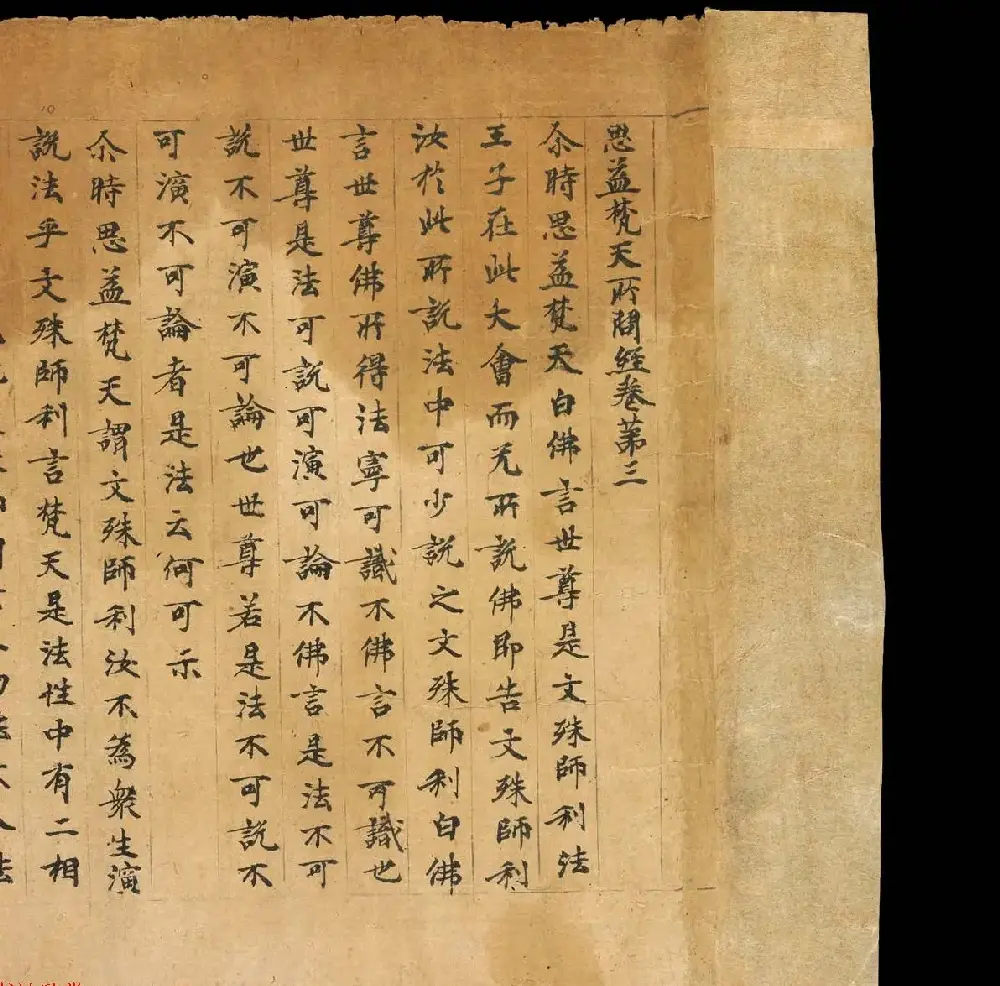 思益梵天所問經卷第三
尒時思益梵天白佛言世尊是文殊師利法
王子在此大會而无所說佛即告文殊師利
汝於此所說法中可少說之文殊師利白佛
言世尊佛所得法寧可識不佛言不可識也
世尊是法可說可演可論不佛言是法不可
說不可演不可論也世尊若是法不可說不
可演不可論者是法云何可示
尒時思益梵天謂文殊師利汝不為衆生演
說法乎文殊師利言梵天是法性中有二相